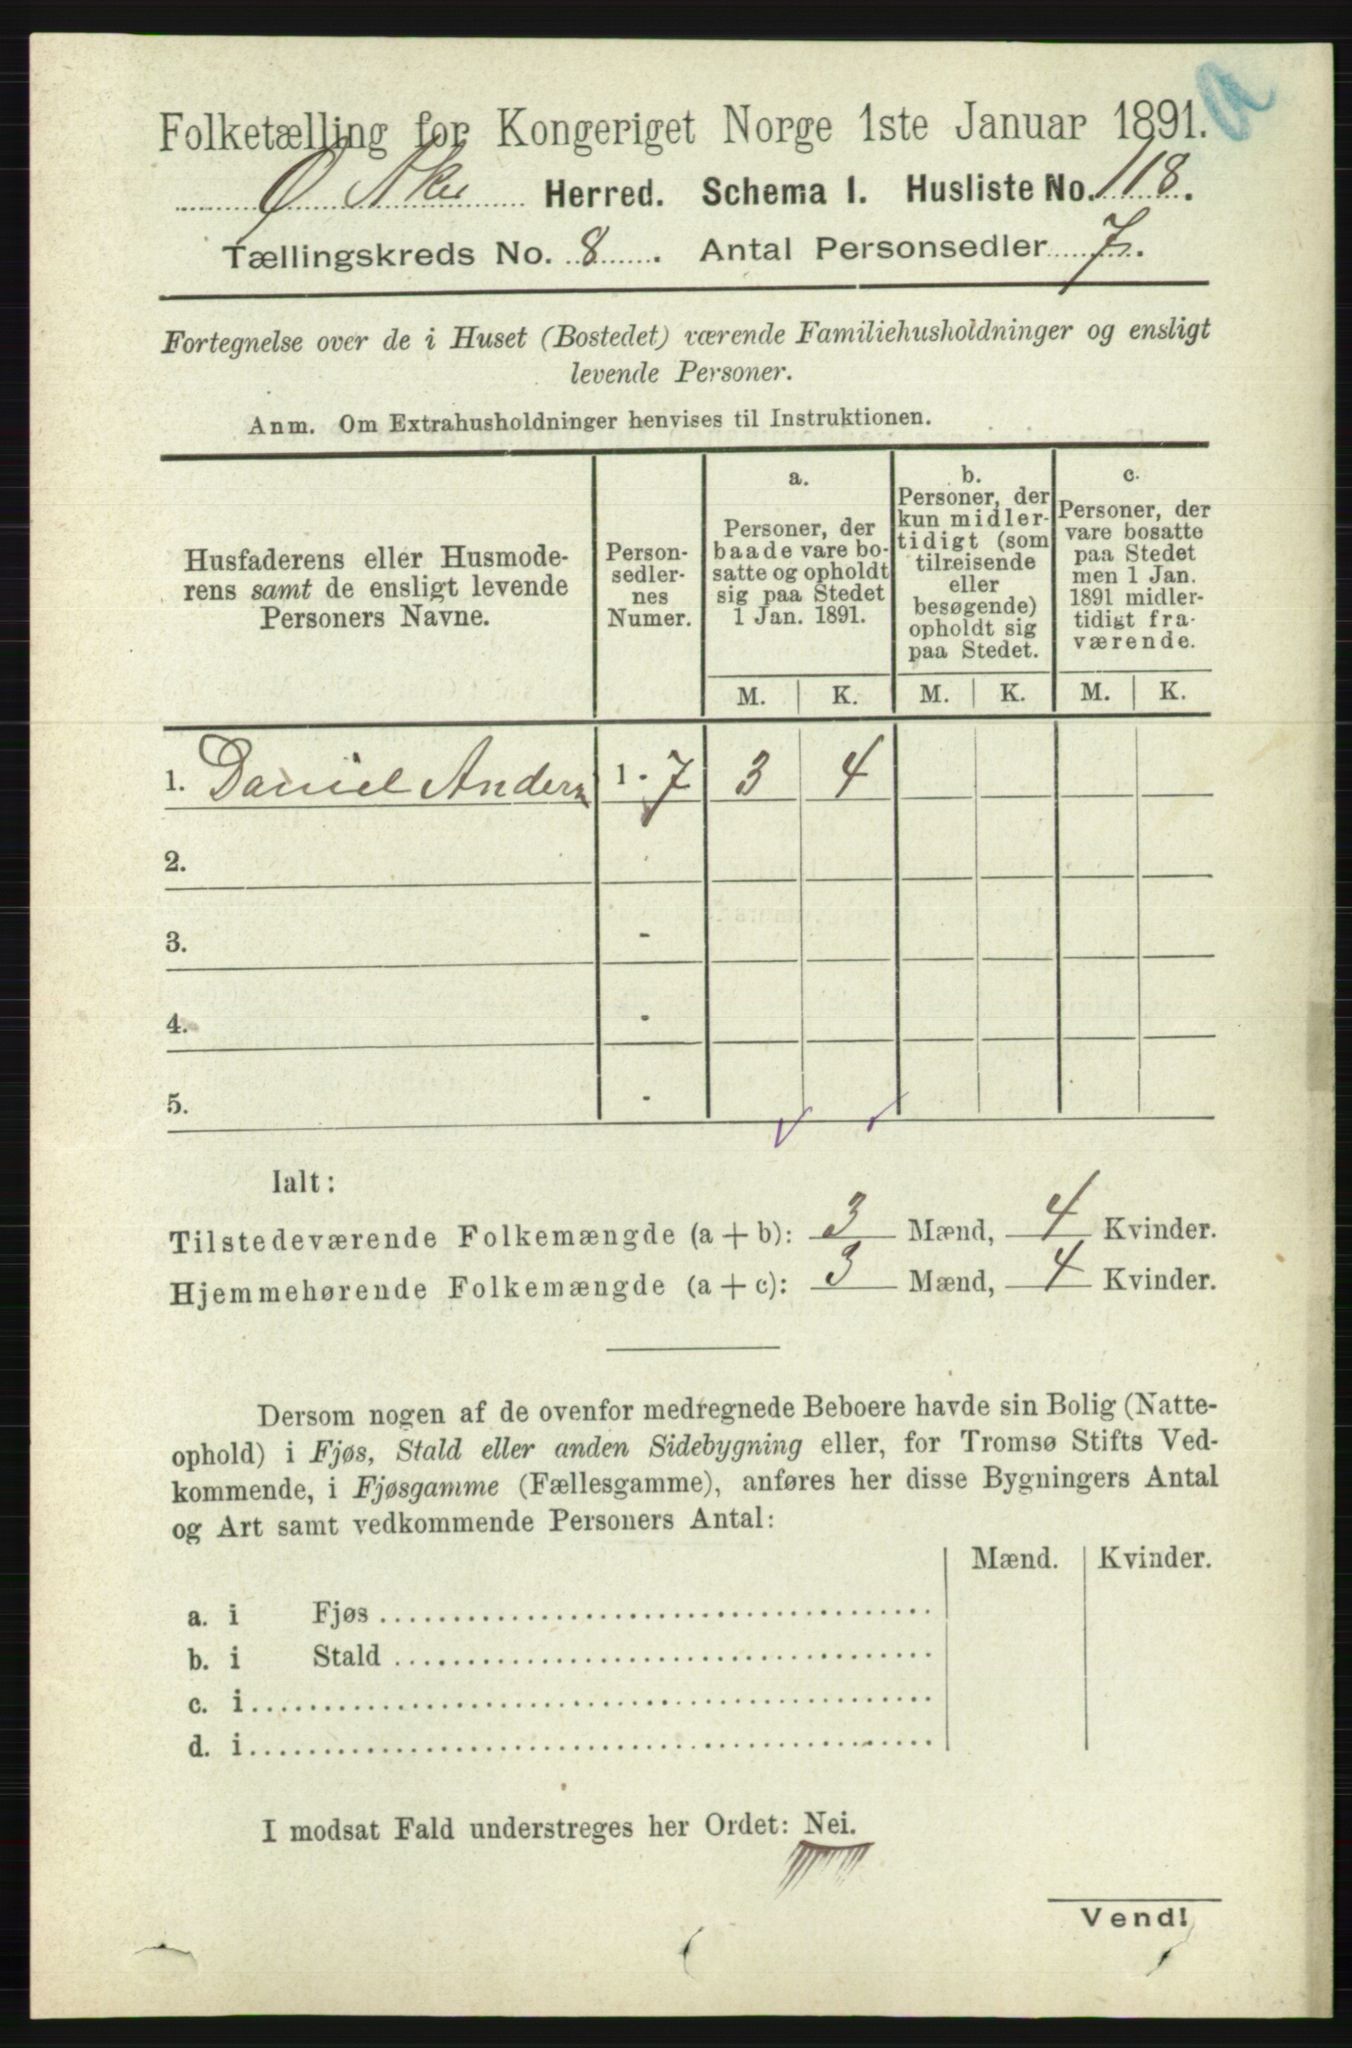 Folketælling for Kongeriget Norge 1ste Januar 1891.
Ø. Aker Herred. Schema I. Husliste No. 118.
Tællingskreds No. 8. Antal Personsedler 7.
Fortegnelse over de i Huset (Bostedet) værende Familiehusholdninger og ensligt
levende Personer.
Anm. Om Extrahusholdninger henvises til Instruktionen.
Husfaderens eller Husmode-
rens samt de ensligt levende
Personers Navne.
Person-
sedler-
nes
Numer.
a.
Personer, der
baade vare bo-
satte og opholdt
sig paa Stedet
1 Jan. 1891.
M. K.
b.
Personer, der
kun midler-
tidigt (som
tilreisende
eller
besøgende)
opholdt sig
paa Stedet.
M. K.
c.
Personer, der
vare bosatte
paa Stedet
men 1 Jan.
1891 midler-
tidigt fra-
værende.
M. K.
1. Daniel Andersn 1 - 7 3 4
2.
3. -
4. -
5. -
Ialt:
Tilstedeværende Folkemængde (a + b): 3 Mænd, 4 Kvinder.
Hjemmehørende Folkemængde (a + c): 3 Mænd, 4 Kvinder.
Dersom nogen af de ovenfor medregnede Beboere havde sin Bolig (Natte-
ophold) i Fjøs, Stald eller anden Sidebygning eller, for Tromsø Stifts Ved-
kommende, i Fjøsgamme (Fællesgamme), anføres her disse Bygningers Antal
og Art samt vedkommende Personers Antal:
Mænd. Kvinder.
a. i Fjøs
b. i Stald
c. i
d. i
I modsat Fald understreges her Ordet: Nei.
Vend!